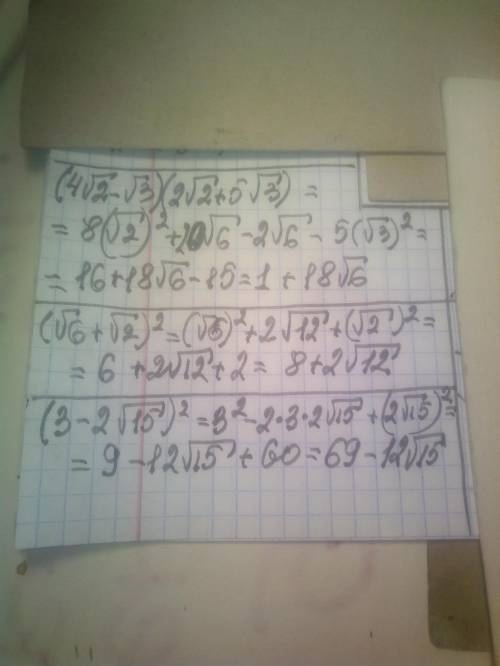 (4√2-√3)(2√2+5√3)=
=8(√2)²+20√6-2√6-5(√3)²=
=16+18√6-15=1+18√6
(√6+√2)²=(√6)²+2√12+(√2)²=
=6+2√12+2=8+2√12
(3-2√15)²=3²-2·3·2√15+(2√15)²=
=9-12√15+60=69-12√15